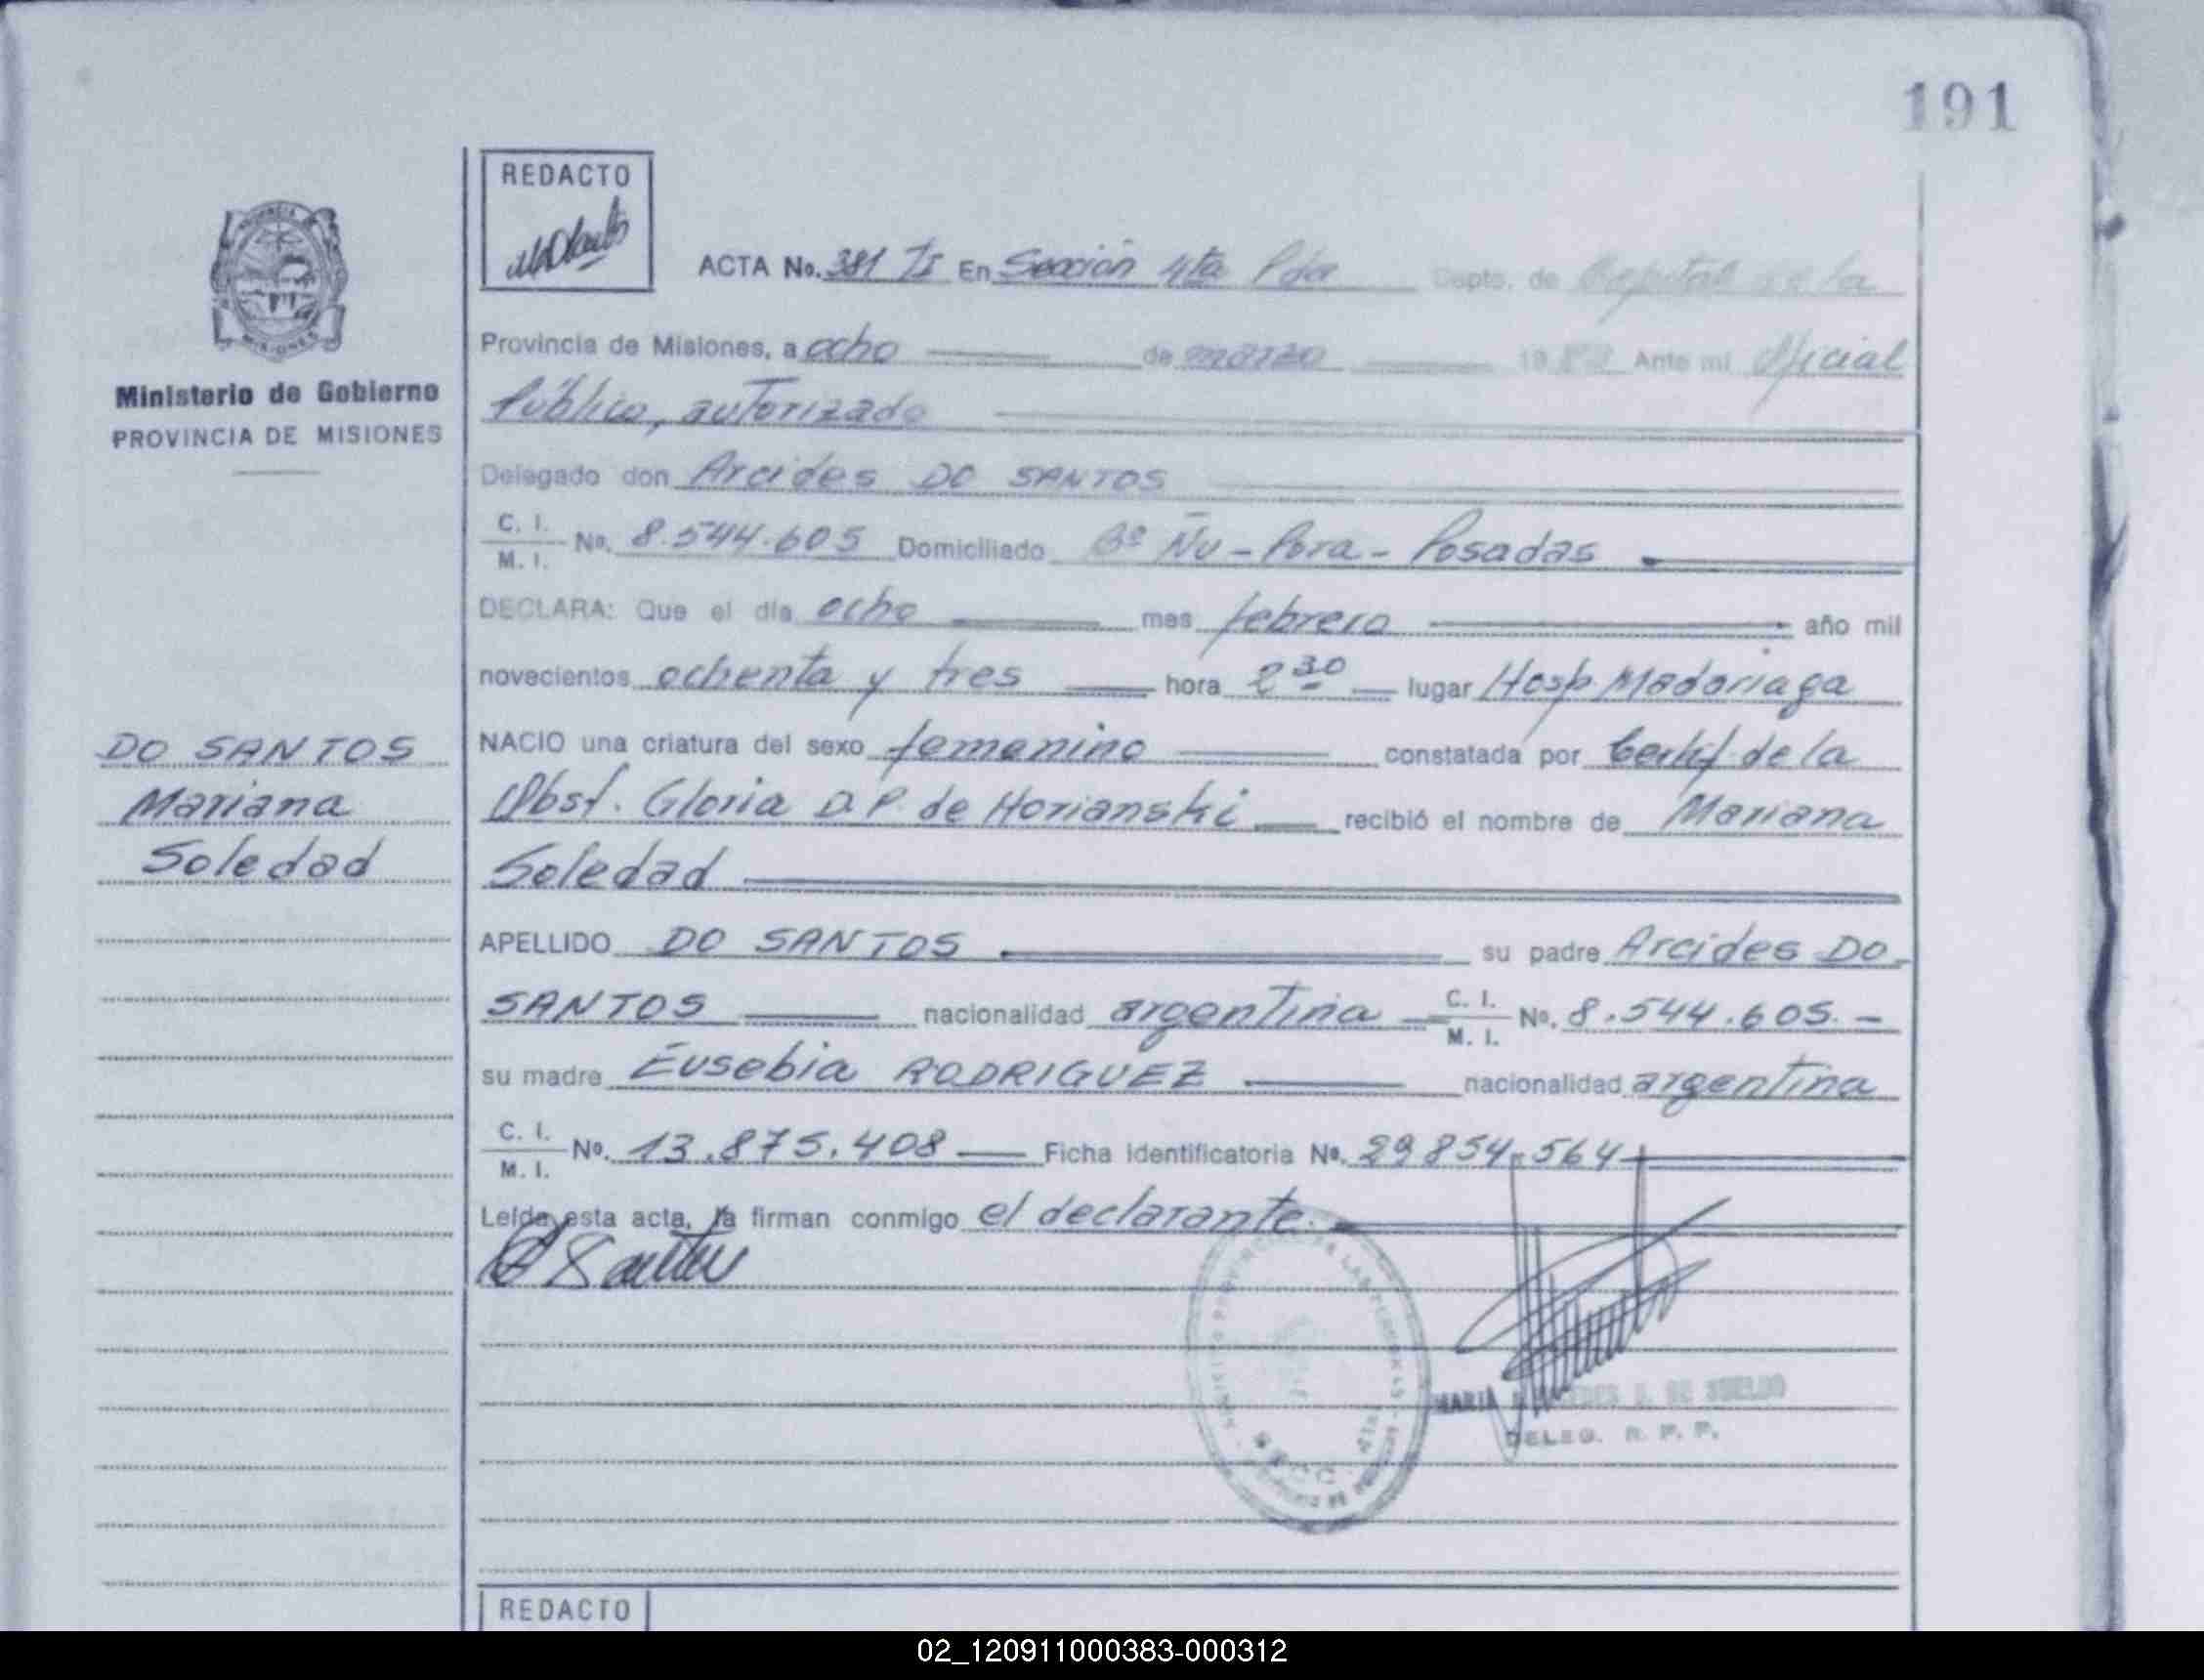 191
REDACTO
ACTA No. 381 TI En Sección 4ta Pda Depto. de Capital de la
Provincia de Misiones, a ocho de marzo 19 Ante mi Oficial
Público, autorizado
Delegado don Arcides DO SANTOS
C. I.
M. I.
No. 8.544.605 Domiciliado Bº Ñu-Pora- Posadas
DECLARA: Que el día ocho mes febrero año mil
novecientos ochenta y tres hora 2 30 lugar Hosp. Madariaga
NACIO una criatura del sexo femenino constatada por Certif. de la
Obst. Gloria D.P. de Horianski recibió el nombre de Mariana
Soledad
APELLIDO DO SANTOS su padre Arcides DO
SANTOS nacionalidad argentina C. I. M. I. No. 8.544.605.-
su madre Eusebia RODRIGUEZ nacionalidad argentina
C. I.
M. I.
No. 13.875.408 Ficha identificatoria No. 29854.564
Leída esta acta, la firman conmigo el declarante.
Ministerio de Gobierno
PROVINCIA DE MISIONES
DO SANTOS
Mariana
Soledad
MARIA DE SUELDO
DELEG. R. P. P.
REDACTO
02_120911000383-000312